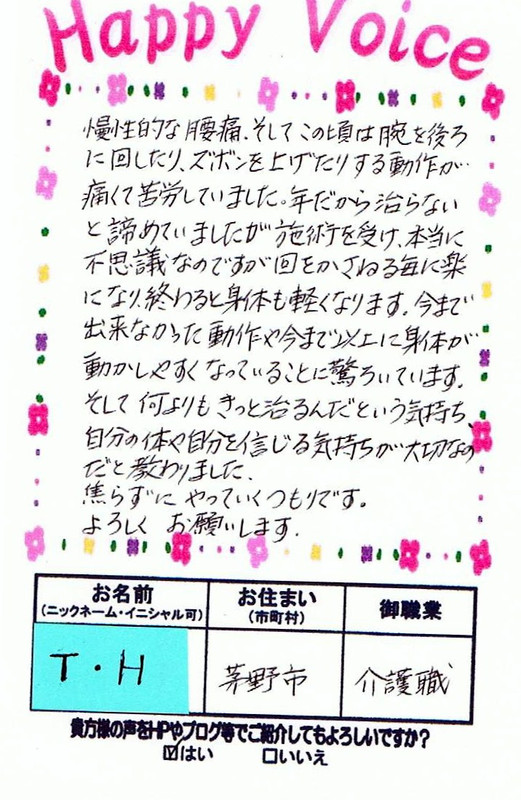 Happy Voice
慢性的な腰痛、そしてこの頃は腕を後ろ
に回したり、ズボンを上げたりする動作が…
痛くて苦労していました。年だから治らない
と諦めていましたが施術を受け、本当に
不思議なのですが回をかさねる毎に楽
になり、終わると身体も軽くなります。今まで
出来なかった動作や今まで以上に身体が
動かしやすくなっていることに驚ろいています。
そして何よりもきっと治るんだという気持ち、
自分の体や自分を信じる気持ちが大切なの
だと教わりました、
焦らずにやっていくつもりです。
よろしく お願いします.
お名前
(ニックネーム・イニシャル可)
お住まい
(市町村)
御職業
T・H
茅野市
介護職
貴方様の声をHPやブログ等でご紹介してもよろしいですか?
☑はい □いいえ